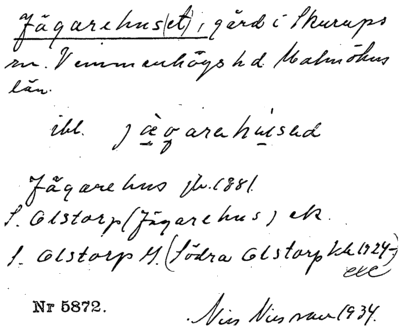 Jägarehus(et), gård i Skurups
sn. Vemmenhögs hd Malmöhus
län.
ibl. jägarehused
Jägarehus jb. 1881.
S. Olstorp (Jägarehus) ek.
S. Olstorp G. (Södra Olstorp kk 1924-)
Nr 5872.
1934.